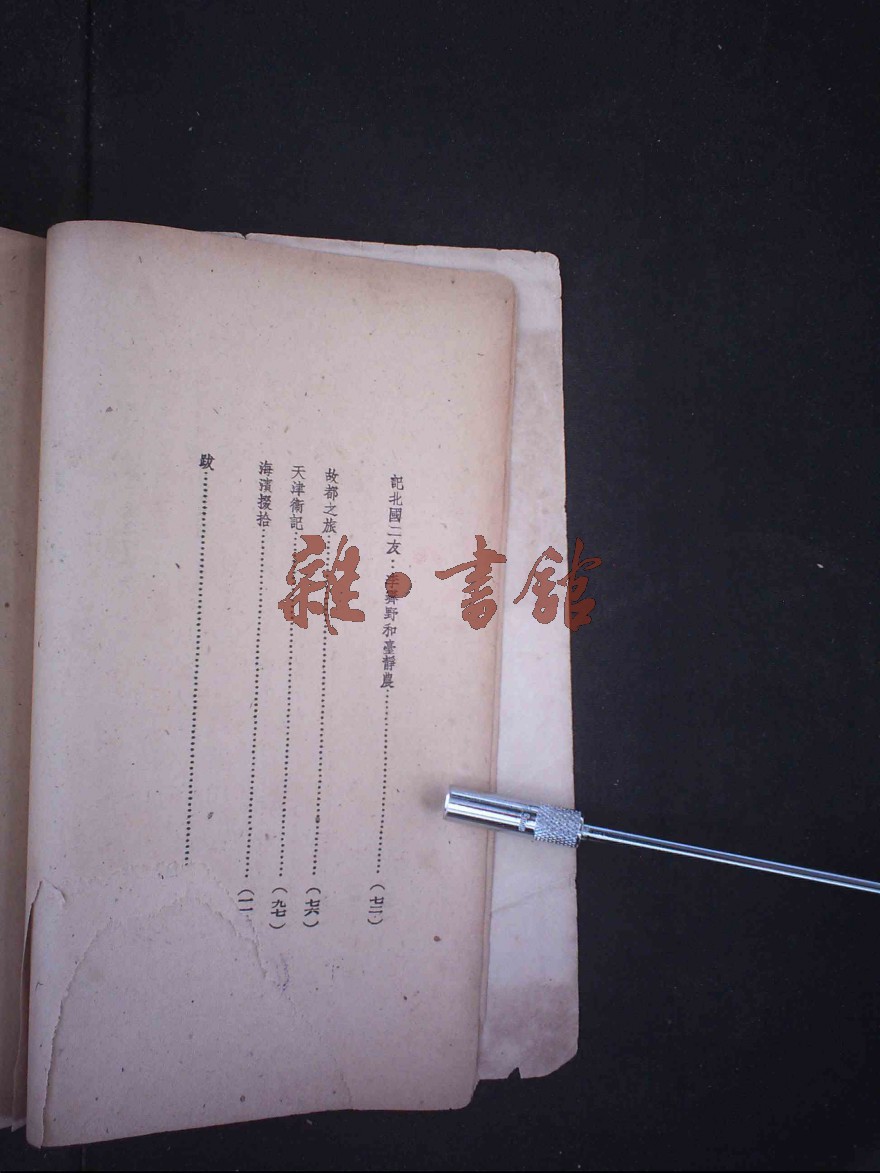 記北國二友⋯李霽野和臺靜農⋯⋯⋯⋯⋯⋯(七二)
故都之旅⋯⋯⋯⋯⋯⋯(七六)
天津衞記⋯⋯⋯⋯⋯⋯(九七)
海濱掇拾⋯⋯⋯⋯⋯⋯(一一
跋⋯⋯⋯⋯⋯⋯
雜·書館